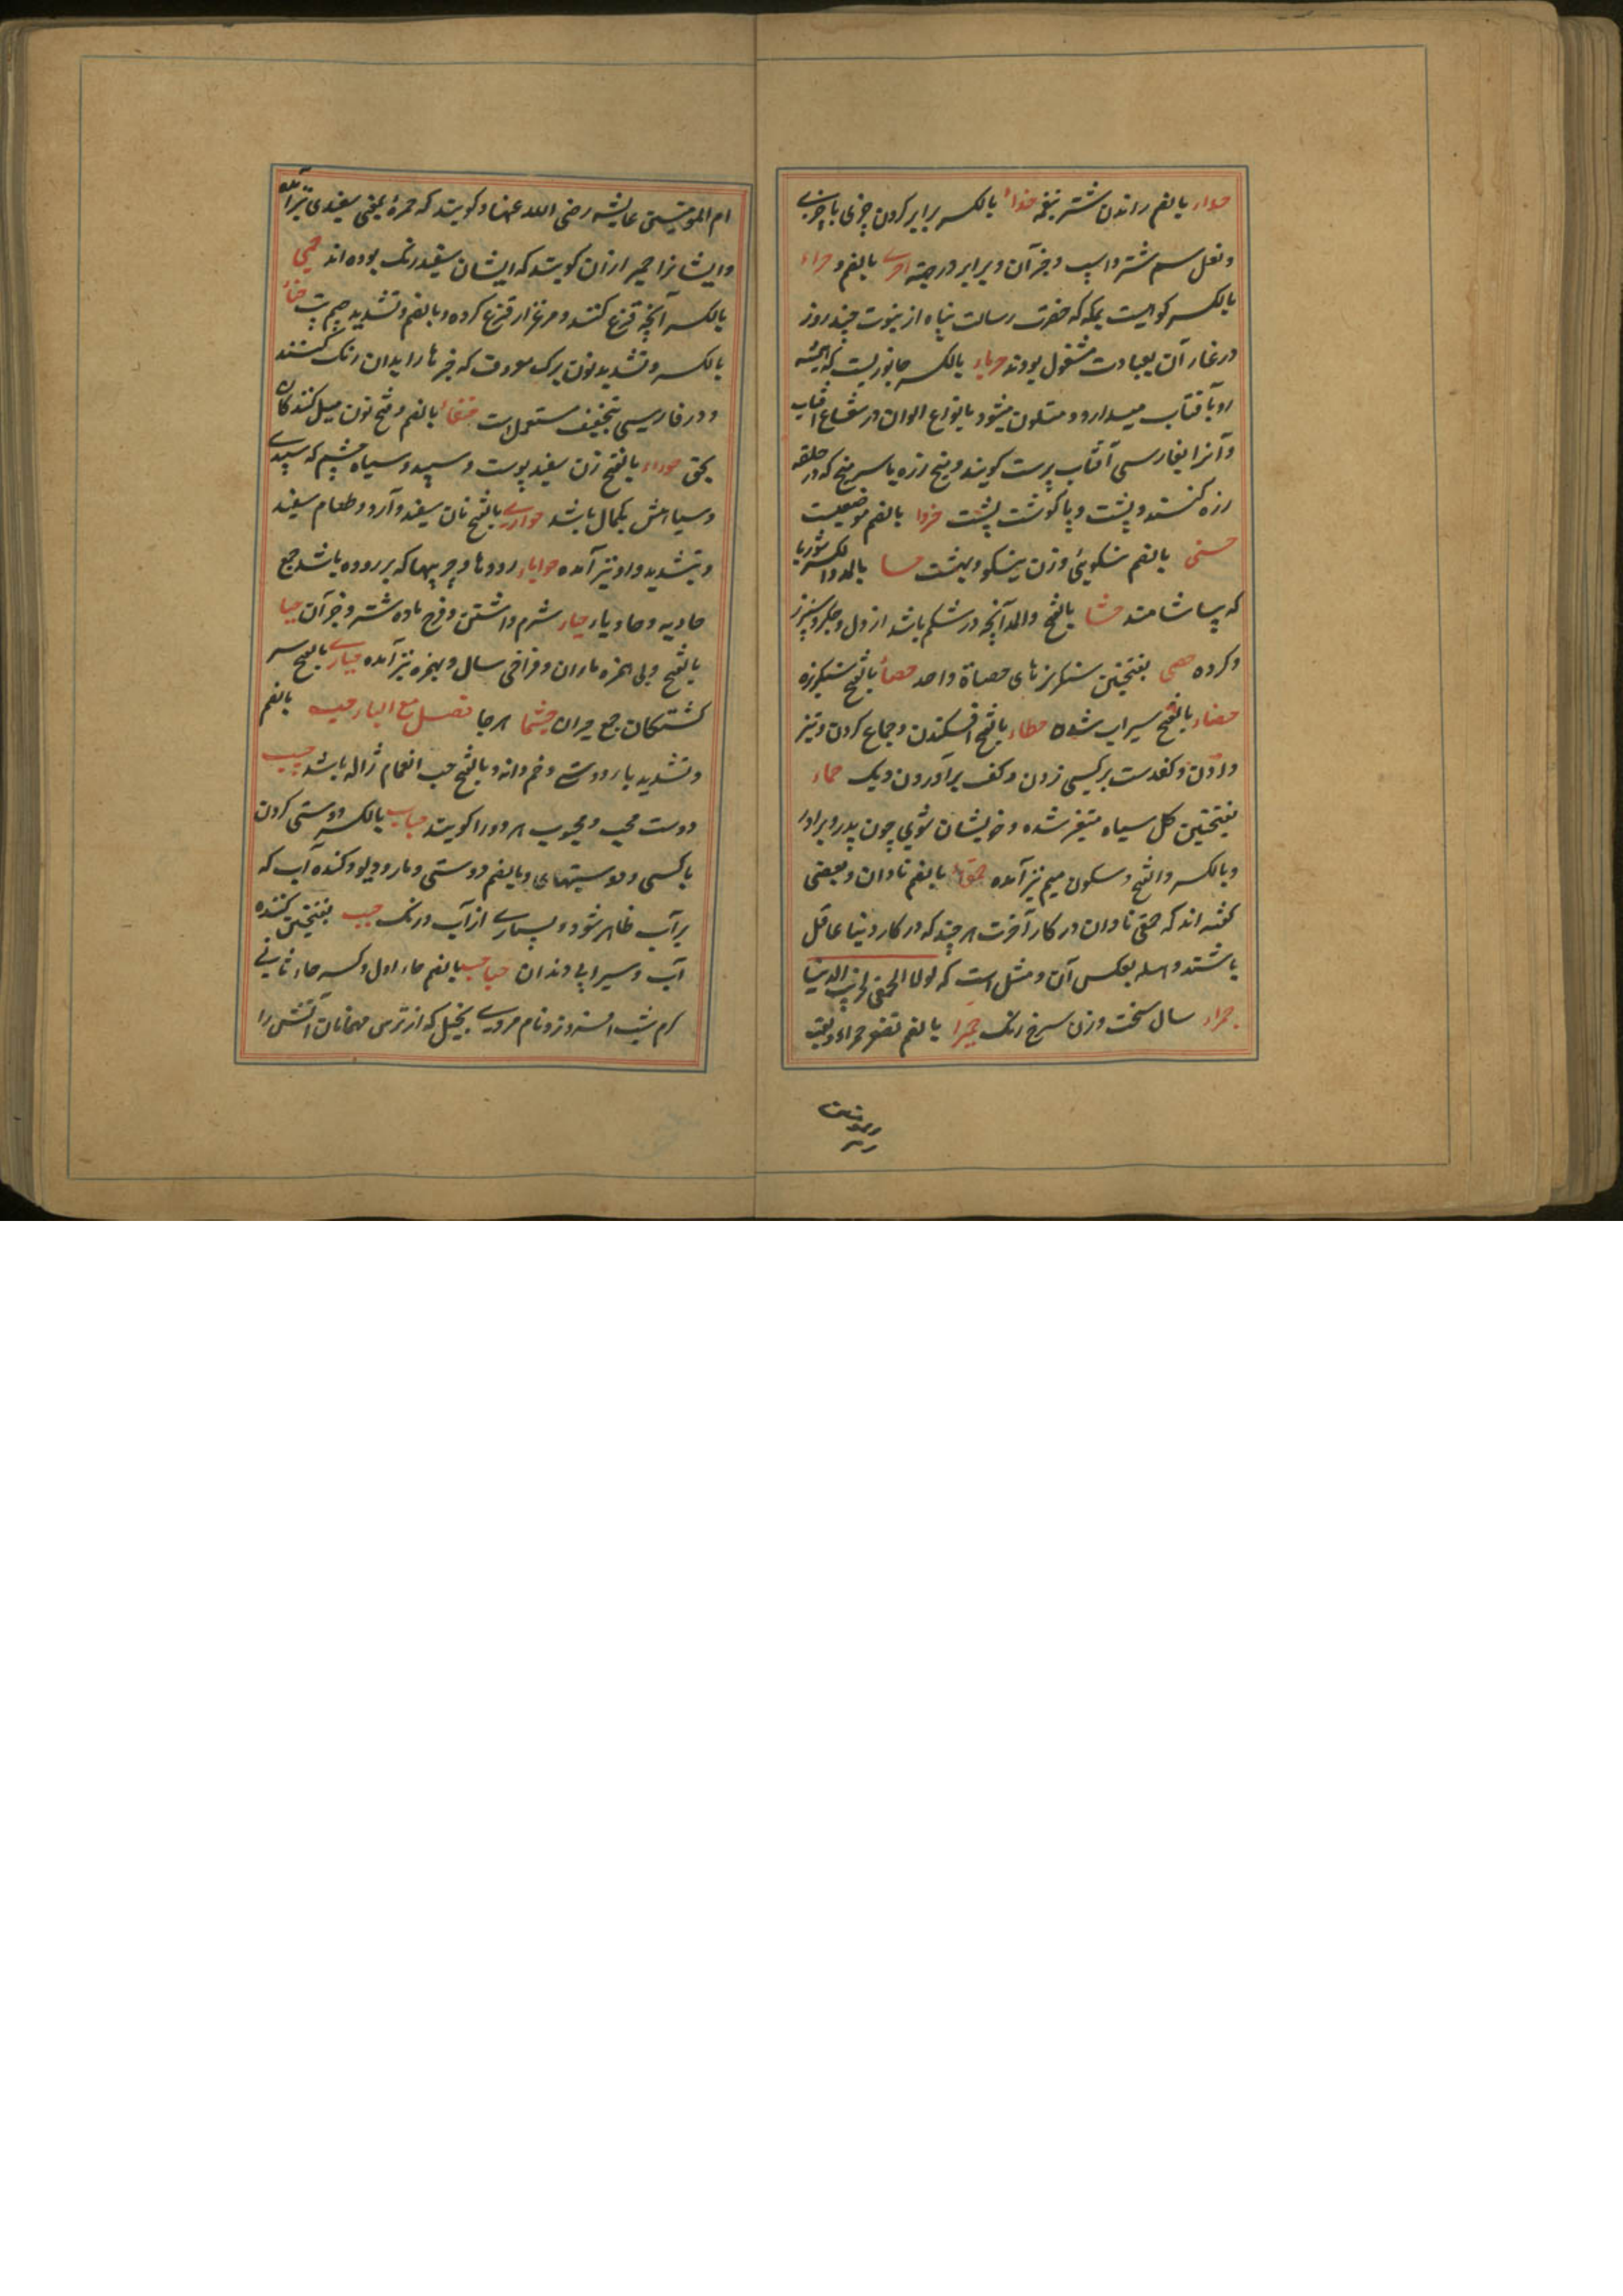 حداء بالضم راندن شتر بنغمه حذاء بالکسر برابر کردن چیزی با چیزی
و نعل سم شتر و اسپ و جز آن و برابر در جثه احری بالضم و حراء
بالکسر کوهیست بمکه که حضرت رسالت پناه از نبوت چند روز
در غار آن بعبادت مشغول بودند حرباء بالکسر جانوریست که همیشه
رو بآفتاب میدارد و متلون میشود بانواع الوان در شعاع آفتاب
و آنرا بفارسی آفتاب پرست کویند و میخ زره یا سر میخ که در حلقه
زره کنند و پشت و یا کوشت پشت حزوا بالضم موضعیست
حسنی بالضم نیکوئی و زن نیکو و بهشت حسا بالمد والکسر شوربا
که بیاشامند حشا بالفتح والمد آنچه در شکم باشد از دل و جکر و سپرز
و کرده حصی بفتحتین سنکریزهای حصاة واحد حصاء بالفتح سنکریزه
حضاء بالفتح سیراب شده حطاء بالفتح افکندن و جماع کردن و تیز
دادن و کف دست بر کسی زدن و کف برآوردن دیک حماء
بفتحتین کل سیاه متغیر شده و خویشان شوی چون پدر و برادر
و بالکسر والفتح و سکون میم نیز آمده حمقا بالضم نادان و بعضی
کفته اند که حمقی نادان در کار آخرت هر چند که در کار دنیا عاقل
باشند و ابله بعکس آن و مثل است که لولا الحمقی لخربت الدنیا
حمراء سال سخت و زن سرخ رنک حمیرا بالضم تصغیر حمراء و لقب
ام المومنین عایشه رضی الله عنها و کویند که حمرة بمعنی سفیدی نیز آمده
و ایشانرا حمیرا از آن کویند که ایشان سفید رنک بوده اند حمی
بالکسر آنچه قرغ کنند و مرغزار قرغ کرده و بالضم و تشدید میم تب حناء
بالکسر و تشدید نون برک معروف که چیزها را بدان رنک کنند
و در فارسی بتخفیف مستعمل است حنفاء بالضم و فتح نون میل کنندکان
بحق حوراء بالفتح زن سفید پوست و سپید و سیاه چشم که سپیدی
و سیاهیش بکمال باشد حواری بالفتح نان سفید و آرد و طعام سفید
و بتشدید واو نیز آمده حوایاء رودها و چربیها که بر روده باشد جمع
حاویه و حاویاء حیاء شرم داشتن و فرج ماده شتر و جز آن حیا
بالفتح و بی همزه باران و فراخی سال و بهمزه نیز آمده حیاری بالفتح سر
کشتکان جمع حیران حیثما هر جا فصل مع الباء حب بالضم
و تشدید با دوستی و خم و دانه و بالفتح حب الغمام ژاله باشد حبیب
دوست محب و محبوب هر دو را کویند حباب بالکسر دوستی کردن
با کسی و دوستیهای و بالضم دوستی و مار و دیو و کنده آب که
بر آب ظاهر شود و بسیاری از آب و رنک حبب بفتحتین کننده
آب و سیرابی دندان حباحب بالضم حاء اول و کسر حاء ثانی
کرم شب افروز و نام مردی بخیل که از ترس مهمانان آتش را